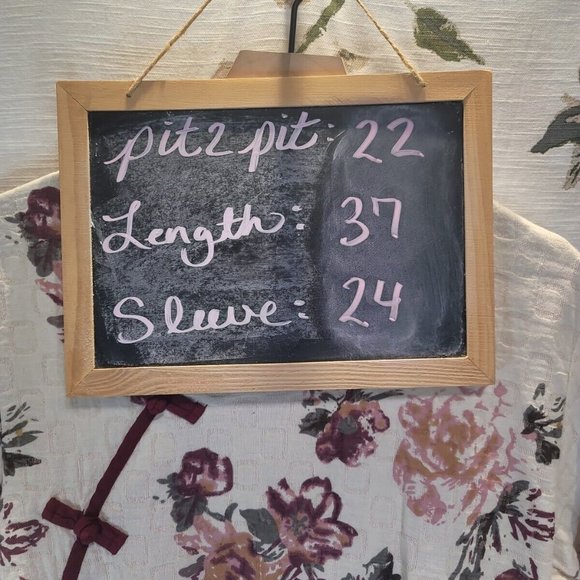 pit 2 pit: 22
Length: 37
Sleeve: 24